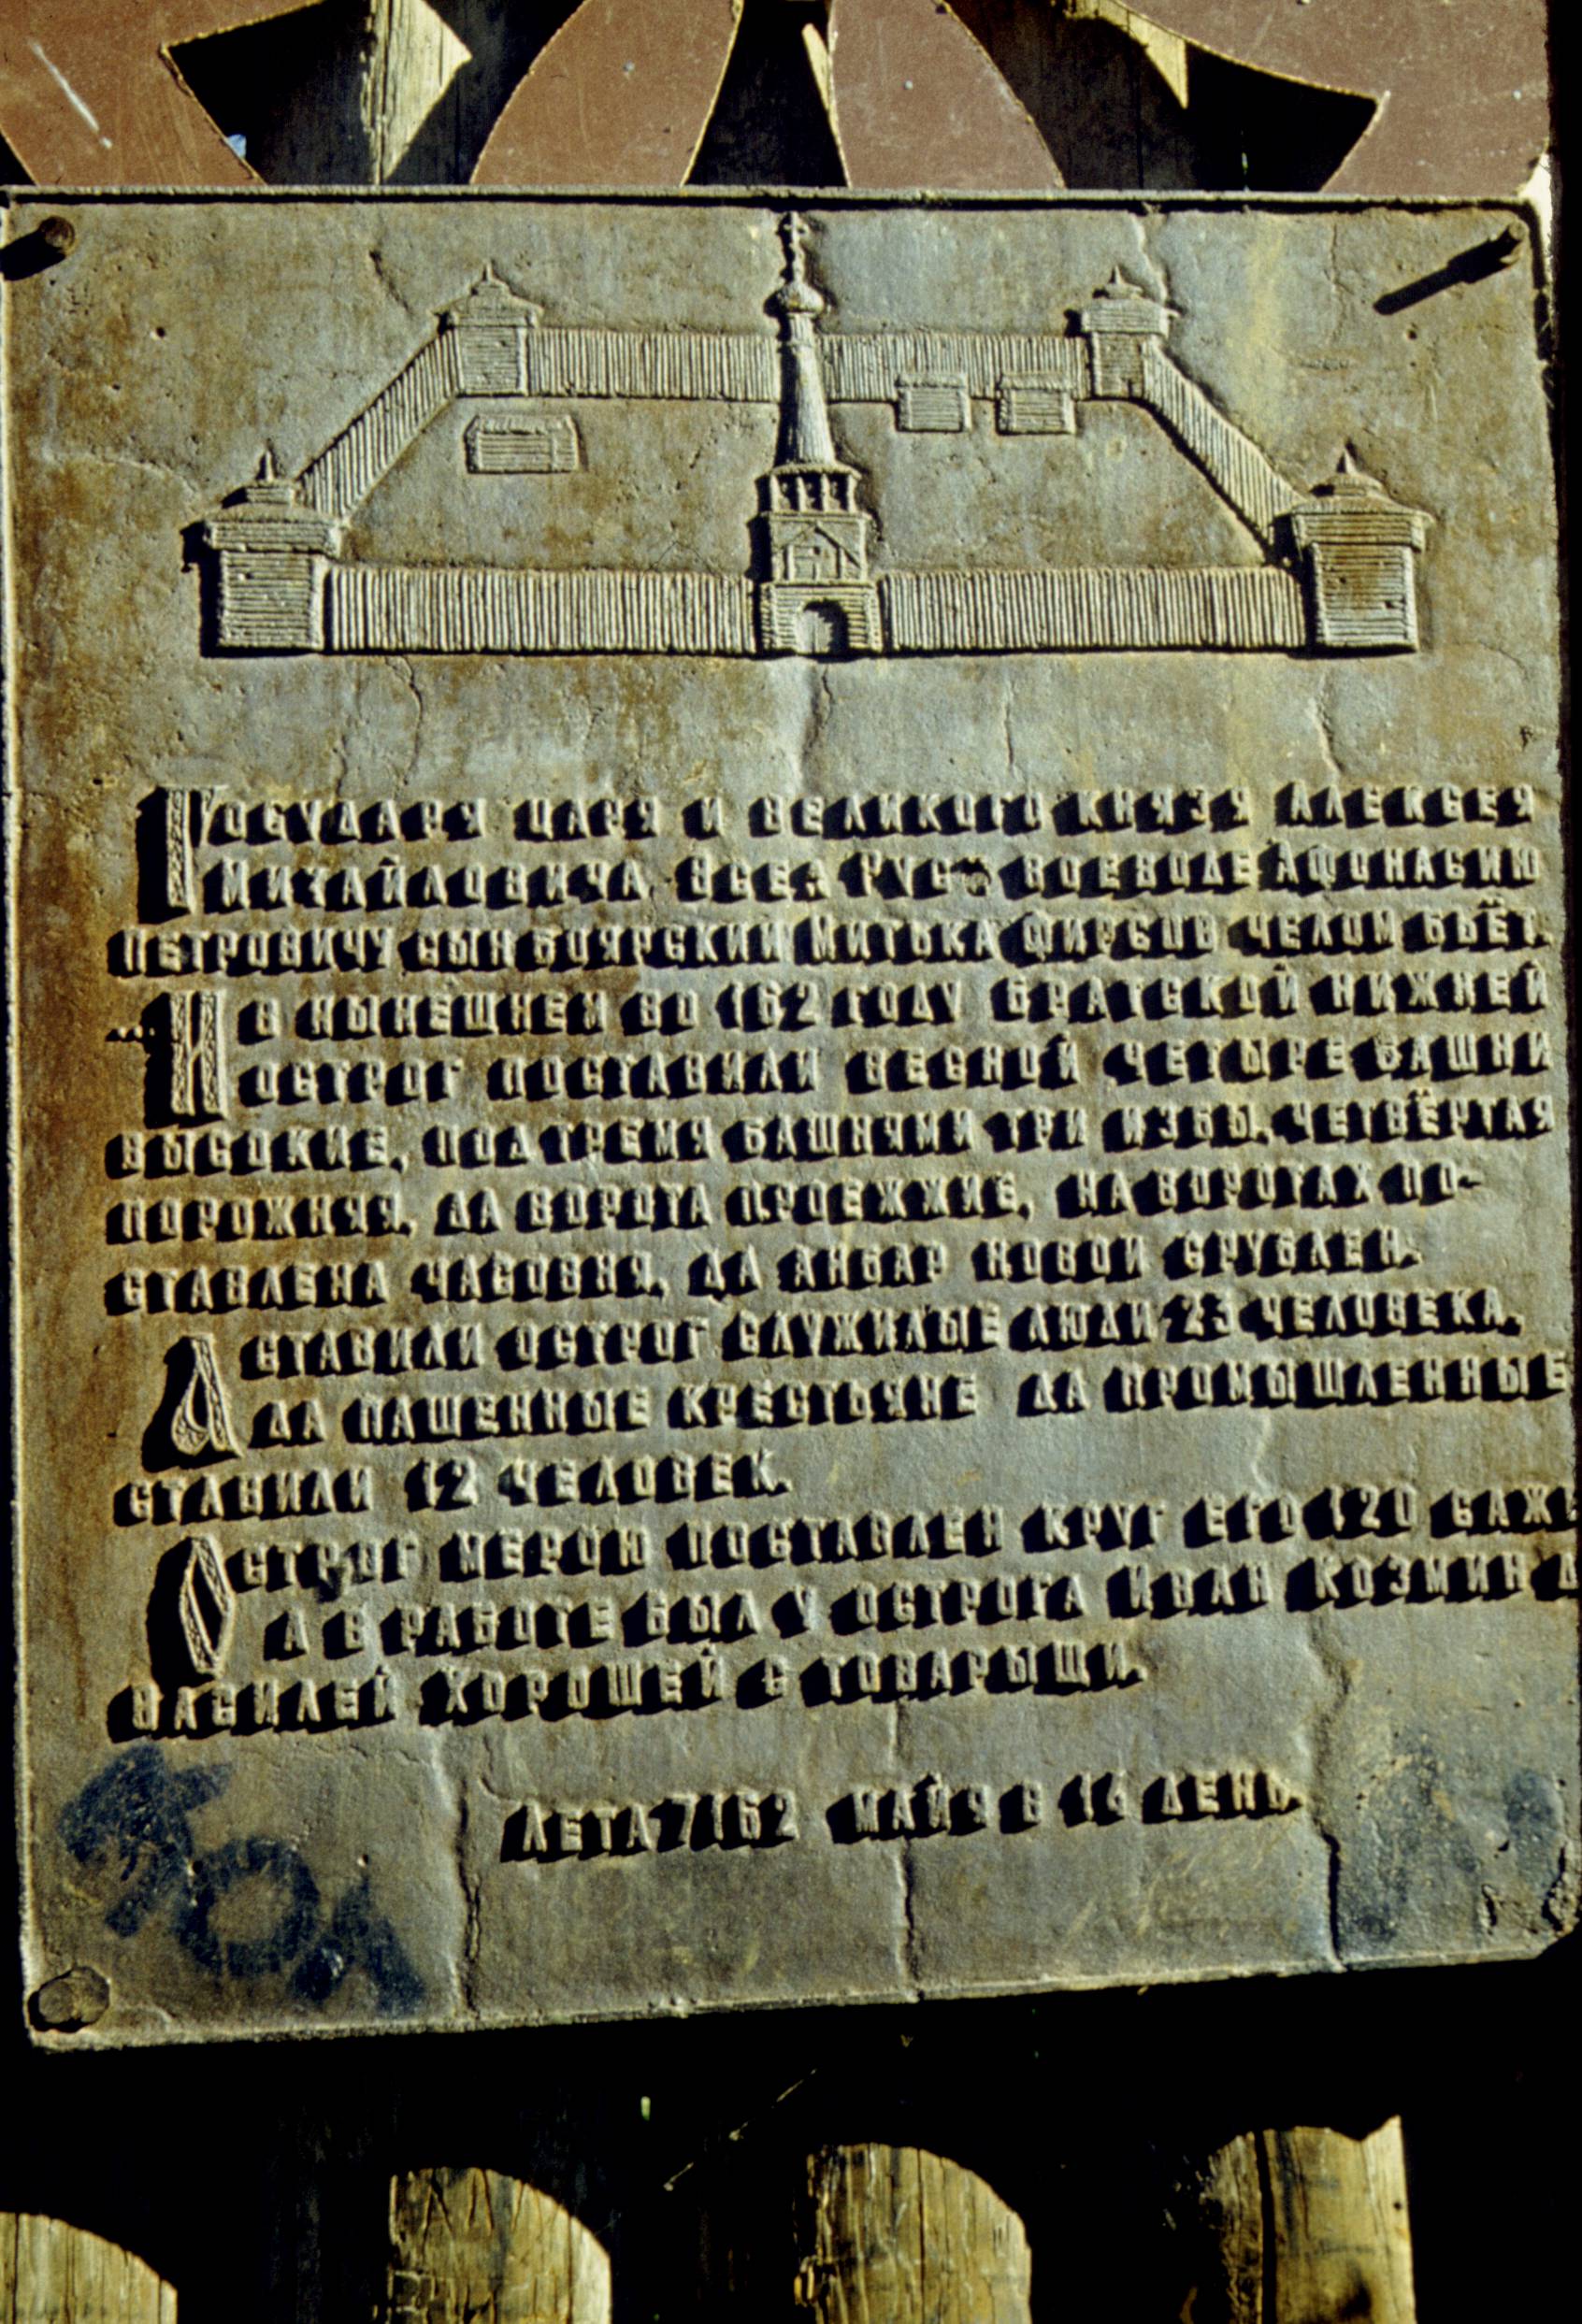 Государя царя и великого князя Алексея
Михайловича Всея Руси воеводе Афонасию
Петровичу сын боярский Митька Фирсов челом бьёт.
...И в нынешнем во 162 году Братской нижней
острог поставили весной четыре башни
высокие, под тремя башнями три избы, четвёртая
порожняя, да ворота проезжие, на воротах по-
ставлена часовня, да анбар новой срублен.
А ставили острог служилые люди 23 человека,
да пашенные крестьяне да промышленные
ставили 12 человек.
Острог мерою поставлен круг его 120 саж
а в работе был у острога Иван Козмин д
Василей Хорошей с товарыщи.
Лета 7162 майя в 16 день.